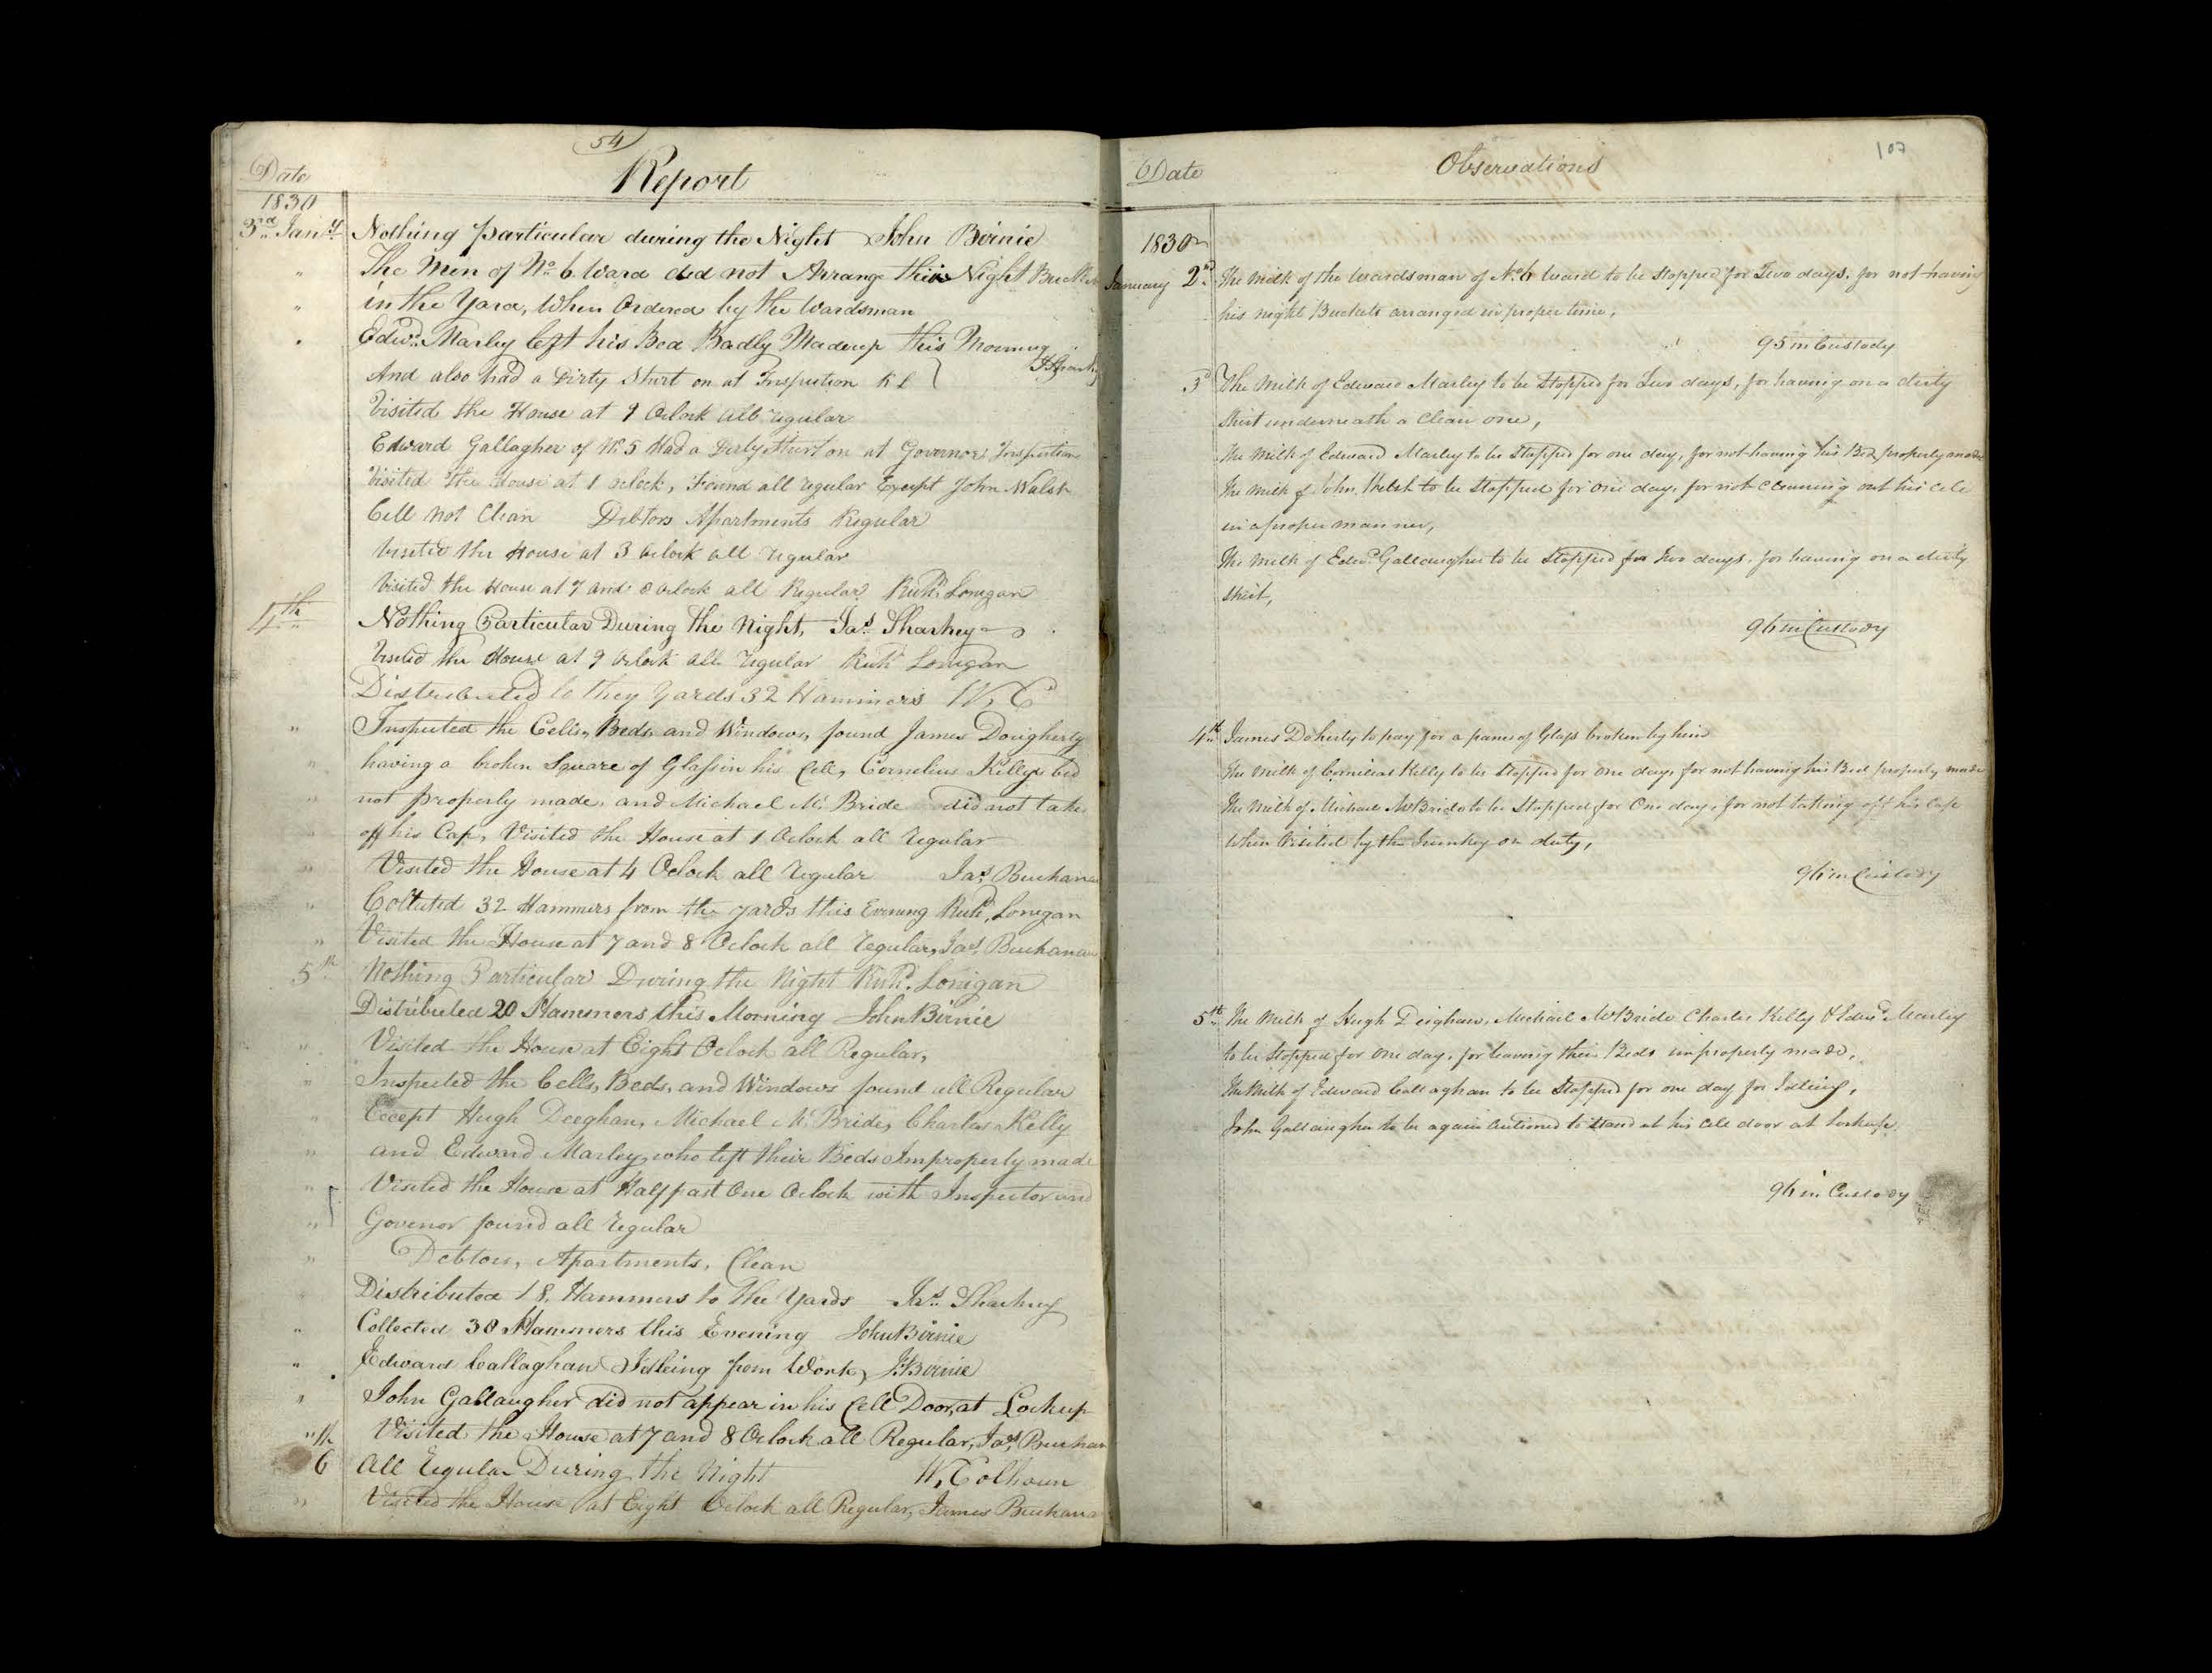 54
Date
Report
1830
3rd Jany Nothing particular during the Night John Birnie
" The Men of No 6 Ward did not Arrange their Night Buckets
" in the Yard, When Ordered by the Wardsman
" Edwd Marley left his Bed Badly Made up this Morning
And also had a Dirty Shirt on at Inspection R L
Visited the House at 9 Oclock all regular
Edward Gallagher of No 5 Had a Dirty Shirt on at Governors Inspection
Visited the House at 1 oclock, Found all regular Except John Walsh
Cell not Clean Debtors Apartments Regular
Visited the House at 3 oclock all regular
Visited the House at 7 and 8 oclock all Regular Richd Lonigan
4th Nothing Particular During the Night, Jas Sharkey
Visited the House at 9 Oclock all regular Richd Lonigan
Distributed to they Yards 32 Hammers W, C
" Inspected the Cells, Beds and Windows, found James Dougherty
" having a broken Square of Glass in his Cell, Cornelius Kellys bed
" not properly made, and Michael Mc Bride did not take
" off his Cap, Visited the House at 1 Oclock all regular
" Visited the House at 4 Oclock all regular Jas Buchanan
" Collected 32 Hammers from the yards this Evening Richd Lonigan
" Visited the House at 7 and 8 Oclock all regular, Jas Buchanan
5th Nothing Particular During the Night Richd Lonigan
Distributed 20 Hammers this Morning John Birnie
" Visited the House at Eight Oclock all Regular,
" Inspected the Cells, Beds, and Windows found all Regular
" Except Hugh Deeghan, Michael Mc Bride, Charles Kelly
" and Edward Marley, who left their Beds Improperly made
" Visited the House at Half past One Oclock with Inspector and
" Govenor found all regular
" Debtors, Apartments, Clean
Distributed 18, Hammers to the Yards Jas Sharkey
" Collected 30 Hammers this Evening John Birnie
" Edward Callaghan Idleing from Work, J. Birnie
" John Gallaugher did not appear in his Cell Door, at Lockup
" Visited the House at 7 and 8 Oclock all Regular, Jas Buchan
6th All Regular During the Night W, Colhoun
" Visited the House at Eight Oclock all Regular, James Buchana
107
Date
Observations
1830
January 2nd The Milk of the Wardsman of No 6 Ward to be Stopped for Two days, for not having
his night Buckets arranged in proper time,
95 in Custody
3d The Milk of Edward Marley to be Stopped for Two days, for having on a dirty
Shirt underneath a Clean one,
The Milk of Edward Marley to be Stopped for one day, for not having his Bed properly made
The Milk of John Welsh to be Stopped for one day, for not Cleaning out his Cell
in a proper manner,
The Milk of Edwd Gallaugher to be Stopped for Two days, for having on a dirty
Shirt,
96 in Custody
4th James Doherty to pay for a pane of Glass broken by him
The Milk of Cornelias Kelly to be Stopped for one day, for not having his Bed properly made
The Milk of Michael McBride to be Stopped for One day, for not taking off his Cap
when Visited by the Turnkey on duty,
96 in Custody
5th The Milk of Hugh Deighan, Michael McBride Charles Kelly & Edwd Marley
to be Stopped for one day, for leaving their Beds improperly made,
The Milk of Edward Callaghan to be Stopped for one day for Idleing,
John Gallaugher to be again Cautioned to Stand at his Cell door at lockup.
96 in Custody